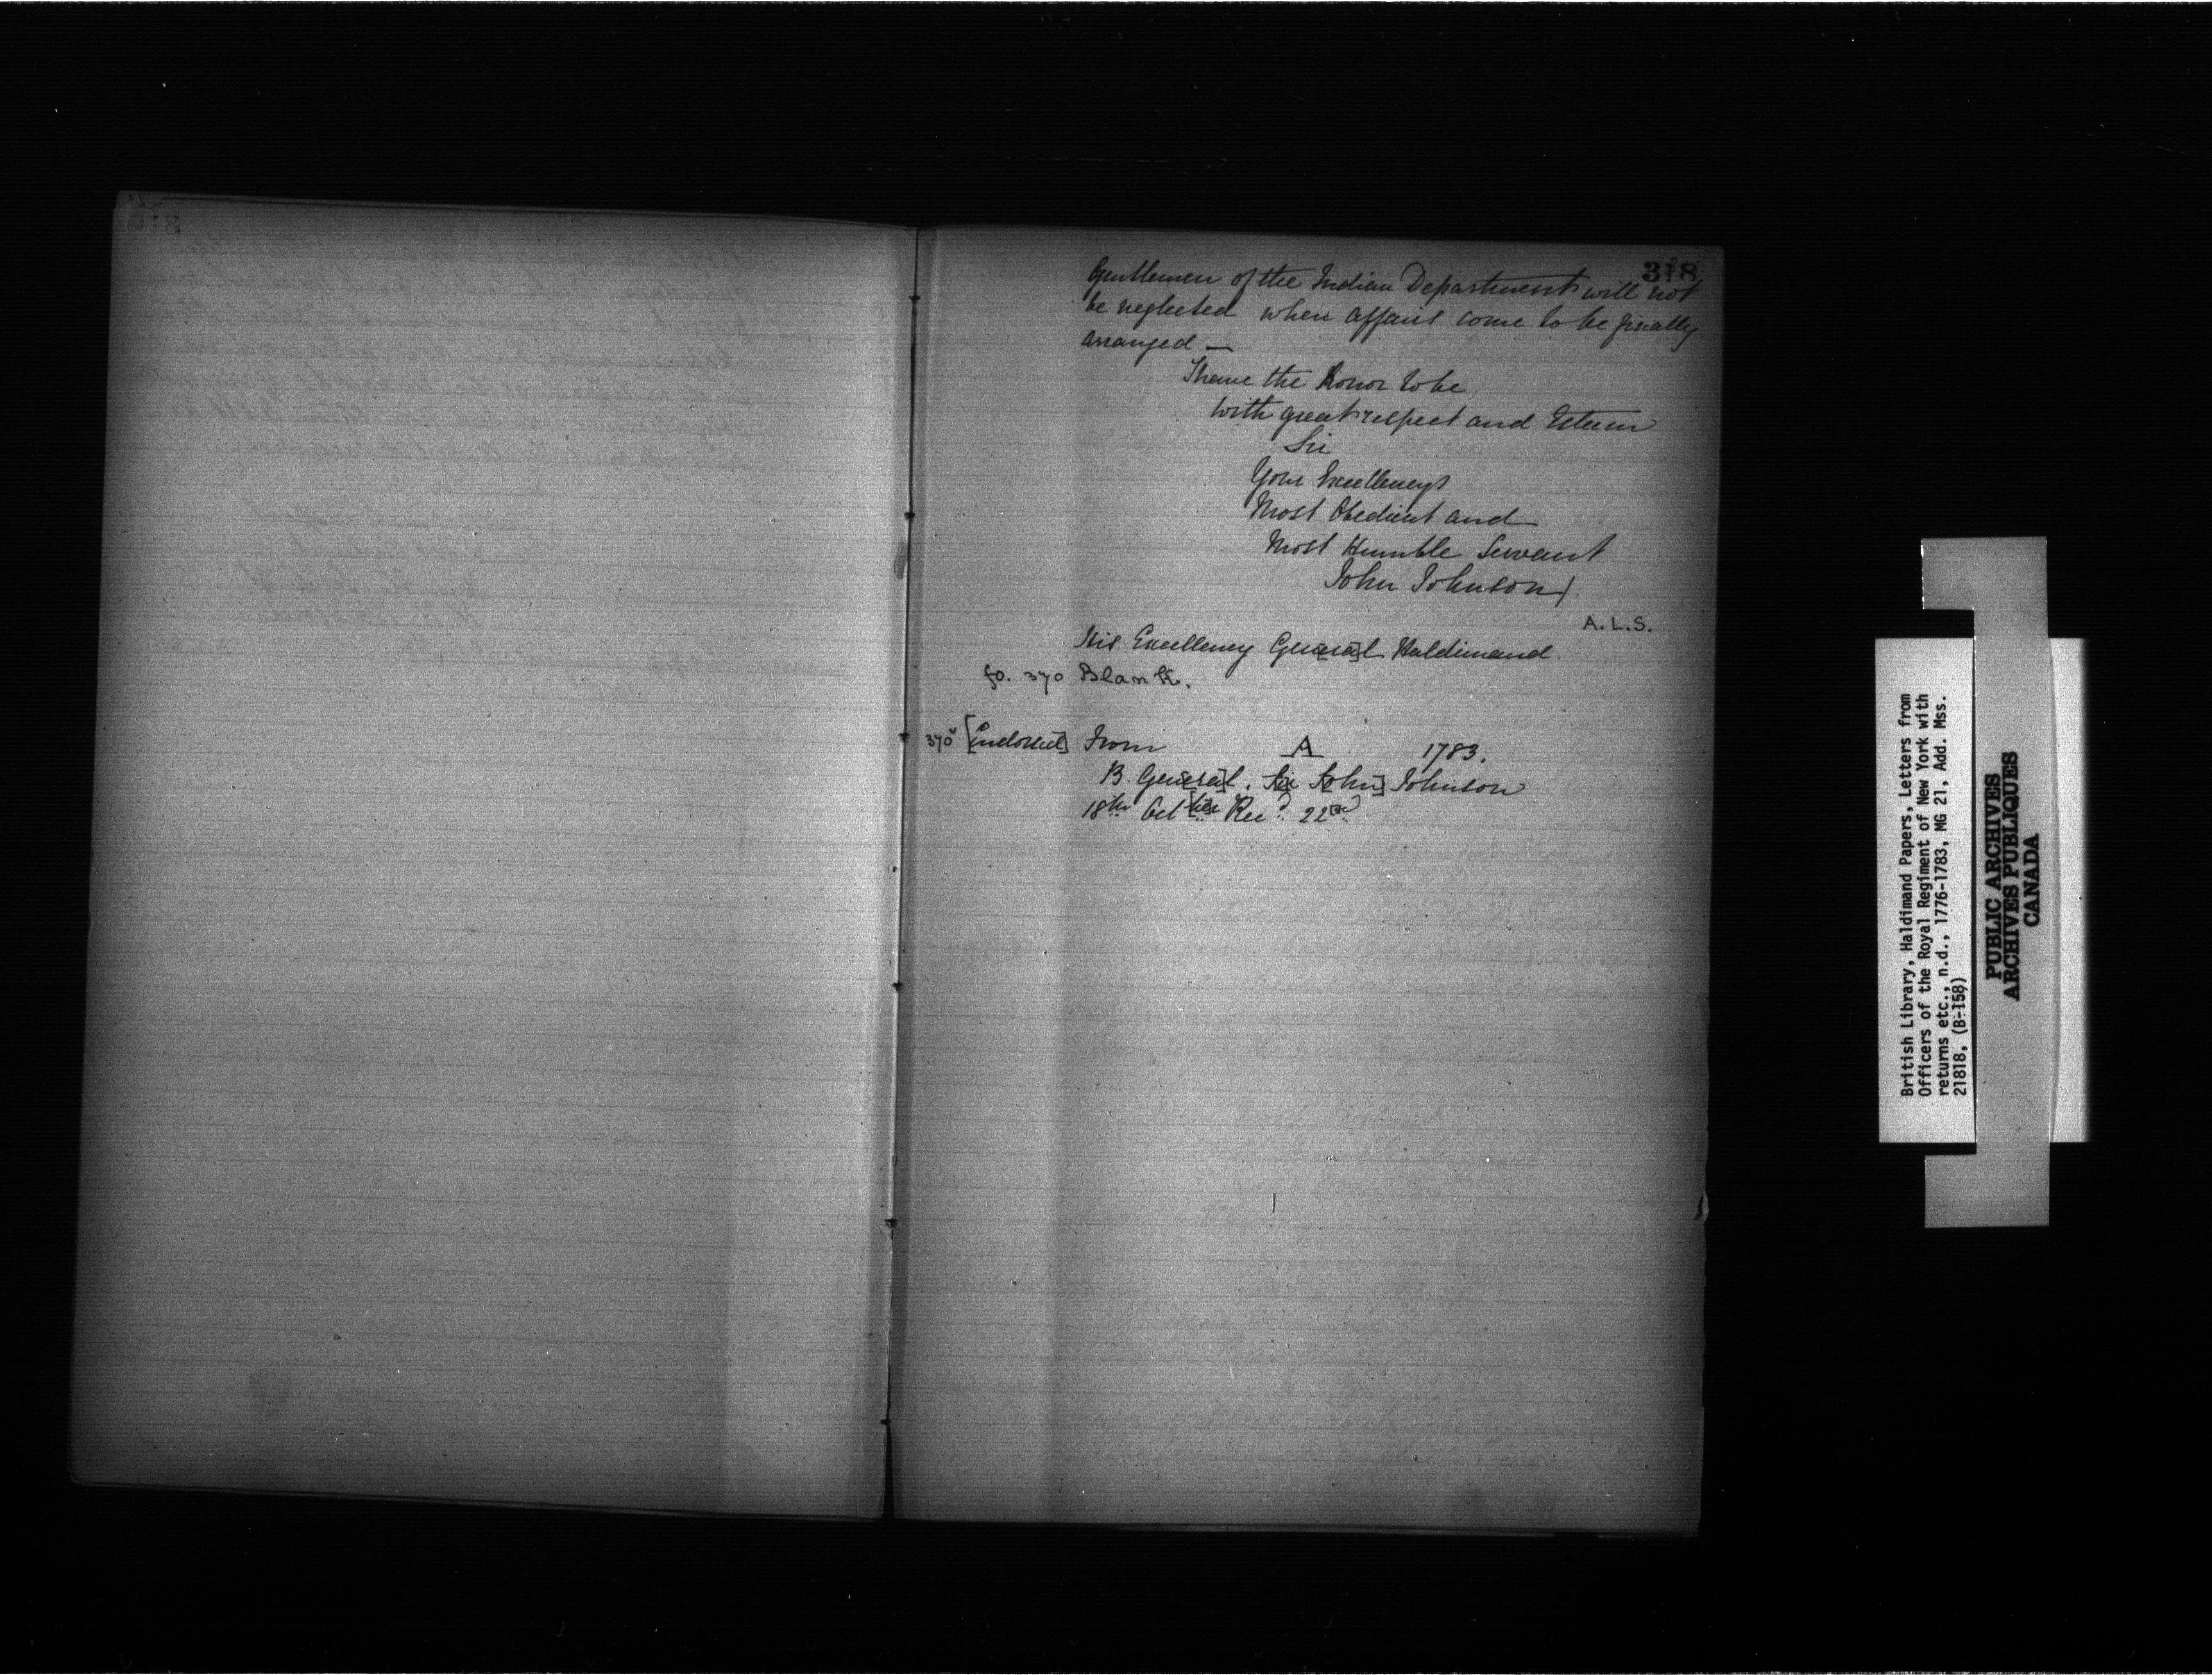 318
Gentlemen of the Indian Department will not
be neglected when affairs come to be finally
arranged —
I have the Honor to be
with great respect and Esteem
Sir
Your Excellencys
Most Obedient and
Most Humble Servant
John Johnson
A.L.S.
His Excellency Gen[era]l Haldimand.
fo. 370 Blank.
370v [Endorsed] From A 1783.
B. Gen[era]l. Sir J[ohn] Johnson
18th Oct[ber] Rec'd 22[nd]
British Library, Haldimand Papers, Letters from
Officers of the Royal Regiment of New York with
returns etc., n.d., 1776-1783, MG 21, Add. Mss.
21818, (B-158)
PUBLIC ARCHIVES
ARCHIVES PUBLIQUES
CANADA